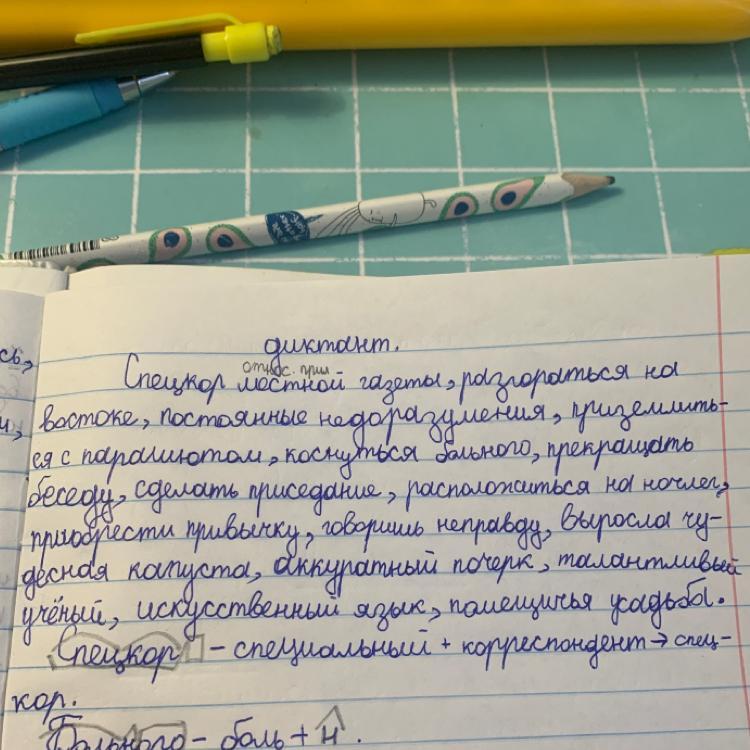 диктант.
относ. прил
Спецкор местной газеты, разгораться на
сь,
востоке, постоянные недоразумения, приземлить-
и,
ся с парашютом, коснуться больного, прекращать
беседу, сделать приседание, расположиться на ночлег,
приобрести привычку, говоришь неправду, выросла чу-
десная капуста, аккуратный почерк, талантливый
учёный, искусственный язык, помещичья усадьба.
Спецкор - специальный + корреспондент → спец-
кор.
Больного - боль + н.